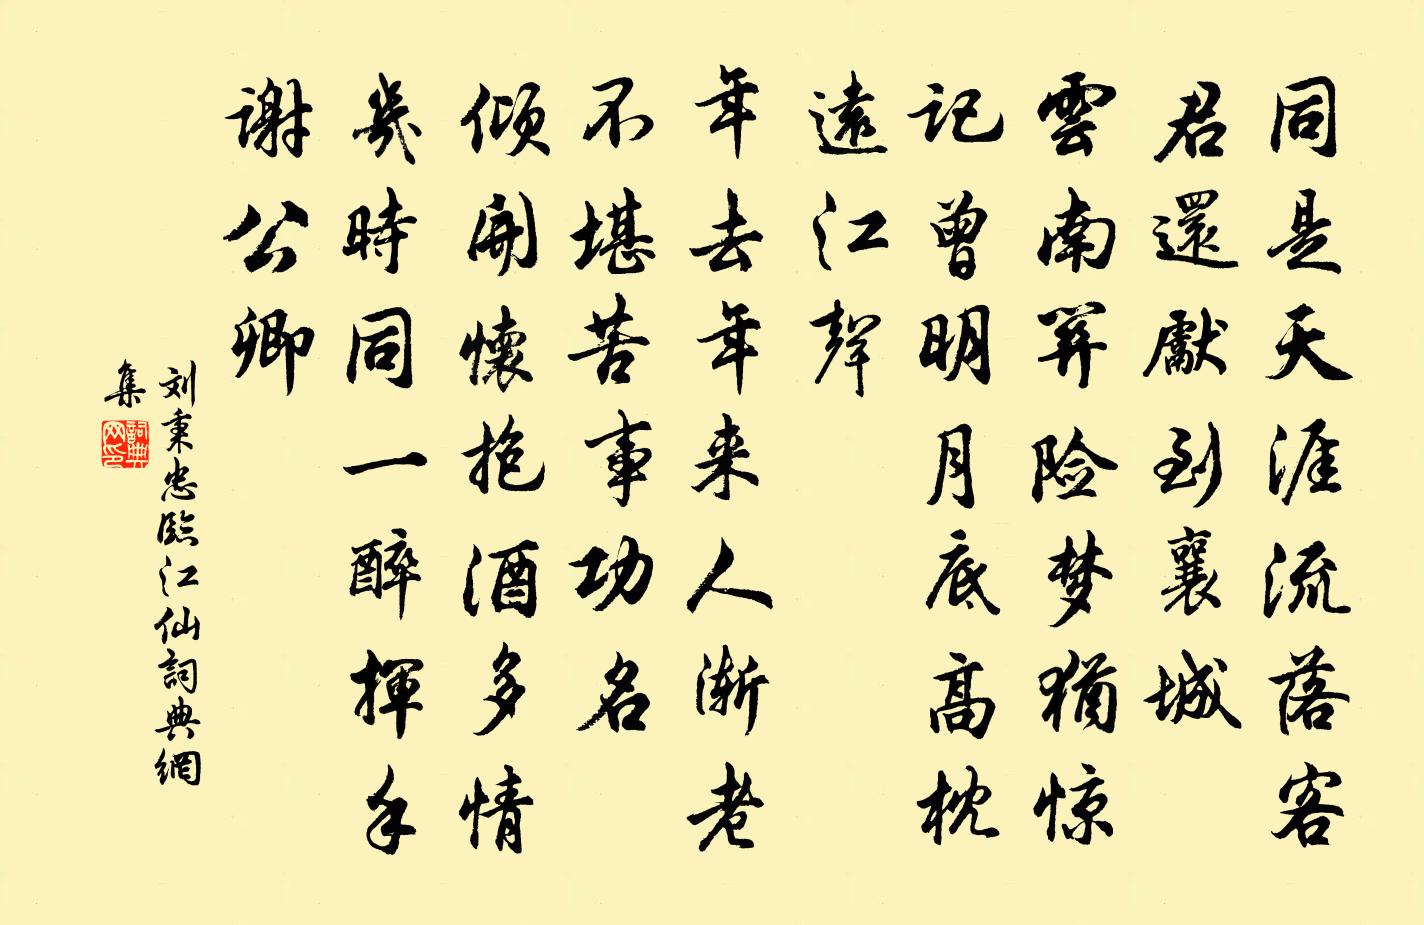 同是天涯流落客
君還獻到襄城
雲南關险梦猶惊
记曾明月底高枕
遠江聲
年去年来人渐老
不堪苦事功名
倾開懷抱酒多情
幾時同一醉揮手
谢公卿
刘秉忠臨江仙詞典網
集
詞典网印